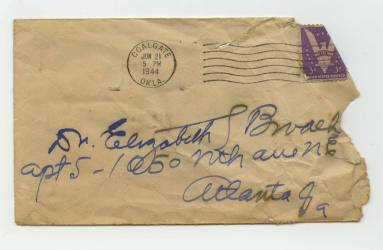 COALGATE
JUN 21
5 PM
1944
OKLA.
Dr. Elizabeth L Broach
apt 5 - 1050 N. ave NE
Atlanta Ga